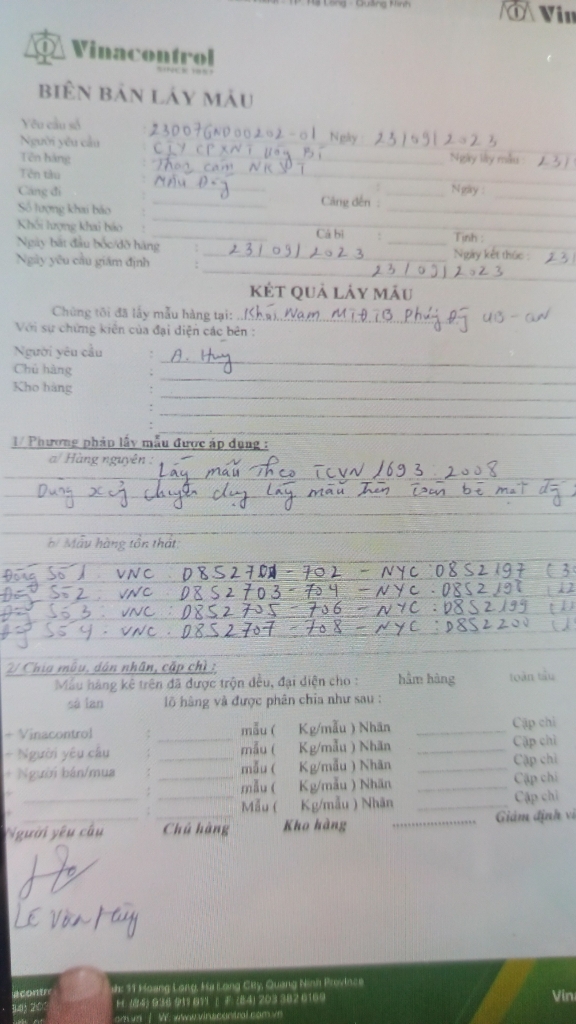 TP. Hạ Long - Quảng Ninh
Vinacontrol
SINCE 1957
Vin
BIÊN BẢN LẤY MẪU
Yêu cầu số : 23007GND00202-01 Ngày : 23/09/2023
Người yêu cầu : CTY CP XNT Uông Bí Ngày lấy mẫu : 23/
Tên hàng : Than cám
Tên tàu : Mẫu Đống
Cảng đi : Cảng đến : Ngày :
Số lượng khai báo :
Khối lượng khai báo : Cá bì : Tịnh :
Ngày bắt đầu bốc/dỡ hàng : 23/09/2023 Ngày kết thúc : 23/
Ngày yêu cầu giám định : 23/09/2023
KẾT QUẢ LẤY MẪU
Chúng tôi đã lấy mẫu hàng tại: Khải Nam UB - QN
Với sự chứng kiến của đại diện các bên :
Người yêu cầu : A. Huy
Chủ hàng :
Kho hàng :
1/ Phương pháp lấy mẫu được áp dụng :
a/ Hàng nguyên : Lấy mẫu theo TCVN 1693 : 2008
Dùng xẻng chuyên dụng lấy mẫu trên toàn bề mặt
b/ Mẫu hàng tổn thất
Đống Số 1 : VNC : D852701 - 702 - NYC : D852197 (
Đống Số 2 : VNC : D852703 - 704 - NYC : D852198 (
Đống Số 3 : VNC : D852705 - 706 - NYC : D852199 (
Đống Số 4 : VNC : D852707 - 708 - NYC : D852200 (
2/ Chia mẫu, dán nhãn, cặp chì :
Mẫu hàng kể trên đã được trộn đều, đại diện cho : hầm hàng toàn tàu
sà lan lô hàng và được phân chia như sau :
+ Vinacontrol : mẫu ( Kg/mẫu ) Nhãn Cặp chì
+ Người yêu cầu : mẫu ( Kg/mẫu ) Nhãn Cặp chì
+ Người bán/mua : mẫu ( Kg/mẫu ) Nhãn Cặp chì
+ : mẫu ( Kg/mẫu ) Nhãn Cặp chì
: Mẫu ( Kg/mẫu ) Nhãn Cặp chì
Người yêu cầu Chủ hàng Kho hàng Giám định vi
LÊ Văn Huy
11 Hoang Long, Ha Long City, Quang Ninh Province
H: (84) 936 911 911 | F: (84) 203 382 6169
W: www.vinacontrol.com.vn
Vina